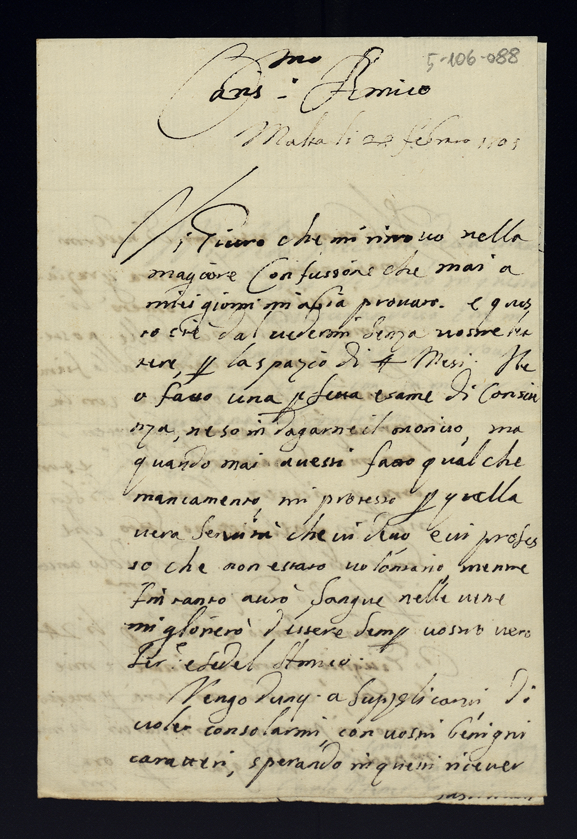 5-106-088
Cariss.mo Amico
Malta li 28 febraro 1705
Vi Giuro che mi ritrovo nella
magiore Confussione che mai a
miei giorni m'abia provato. e ques
to è dal vedermi senza vostre let
tere, p la spazio di 4 Mesi. Ne
o fatto una pfetta esame di Consie
nza, ne so indagarne il motivo, ma
quando mai avessi fatto qualche
mancamento, mi protesto p quella
vera Servitù che vi devo e vi profes
so che non è stato volontario, mentre
Fin tanto avrò Sangue nelle vene
mi glorierò d'essere semp vostro vero
Ser. e fedel Amico.
Vengo dunq. a Supplicarvi di
voler consolarmi, con vostri benigni
caratteri, sperando in questi ricever